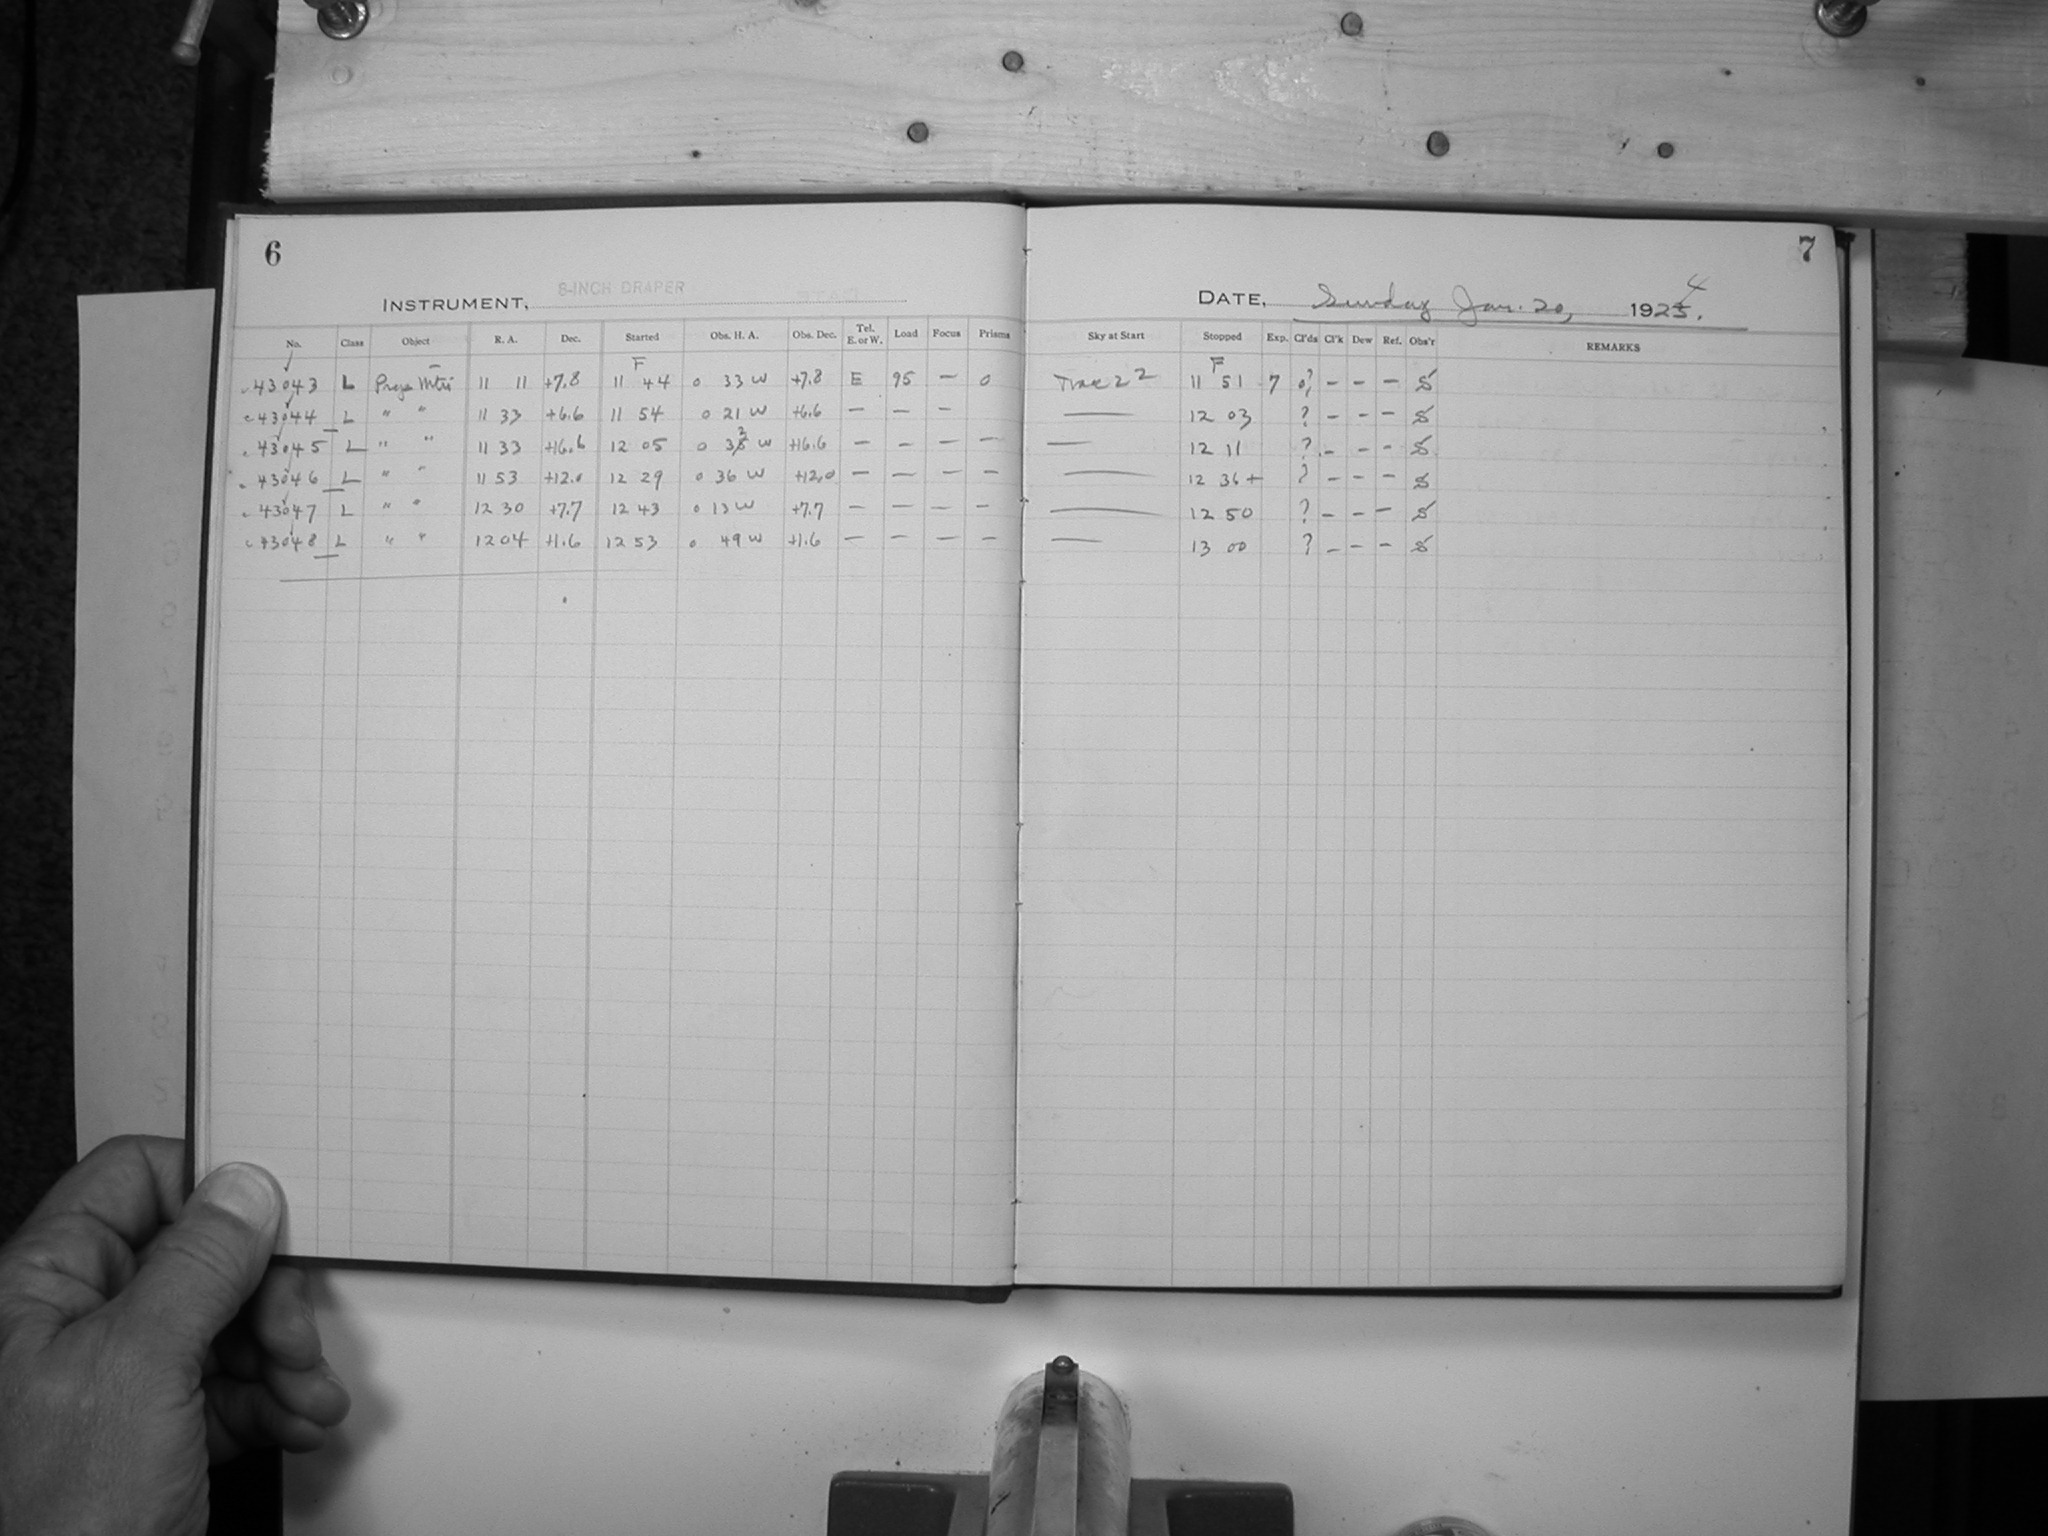 6
8-INCH DRAPER
INSTRUMENT,
No. Class Object R. A. Dec. Started Obs. H. A. Obs. Dec. Tel. E. or W. Load Focus Prisms
F
43043 L 11 11 +7.8 11 44 0 33 W +7.8 E 95 — 0
43044 L " " 11 33 +6.6 11 54 0 21 W +6.6 — — —
43045 L " " 11 33 +16.6 12 05 0 32 W +16.6 — — — —
43046 L " " 11 53 +12.0 12 29 0 36 W +12.0 — — — —
43047 L " " 12 30 +7.7 12 43 0 13 W +7.7 — — — —
43048 L " " 12 04 +1.6 12 53 0 49 W +1.6 — — — —
7
DATE, Sunday Jan. 20, 1924.
Sky at Start Stopped Exp. Cl'ds Cl'k Dew Ref. Obs'r REMARKS
F
22 11 51 7 0? – – – S
— 12 03 ? – – – S
— 12 11 ? – – – S
— 12 36+ ? – – – S
— 12 50 ? – – – S
— 13 00 ? – – – S